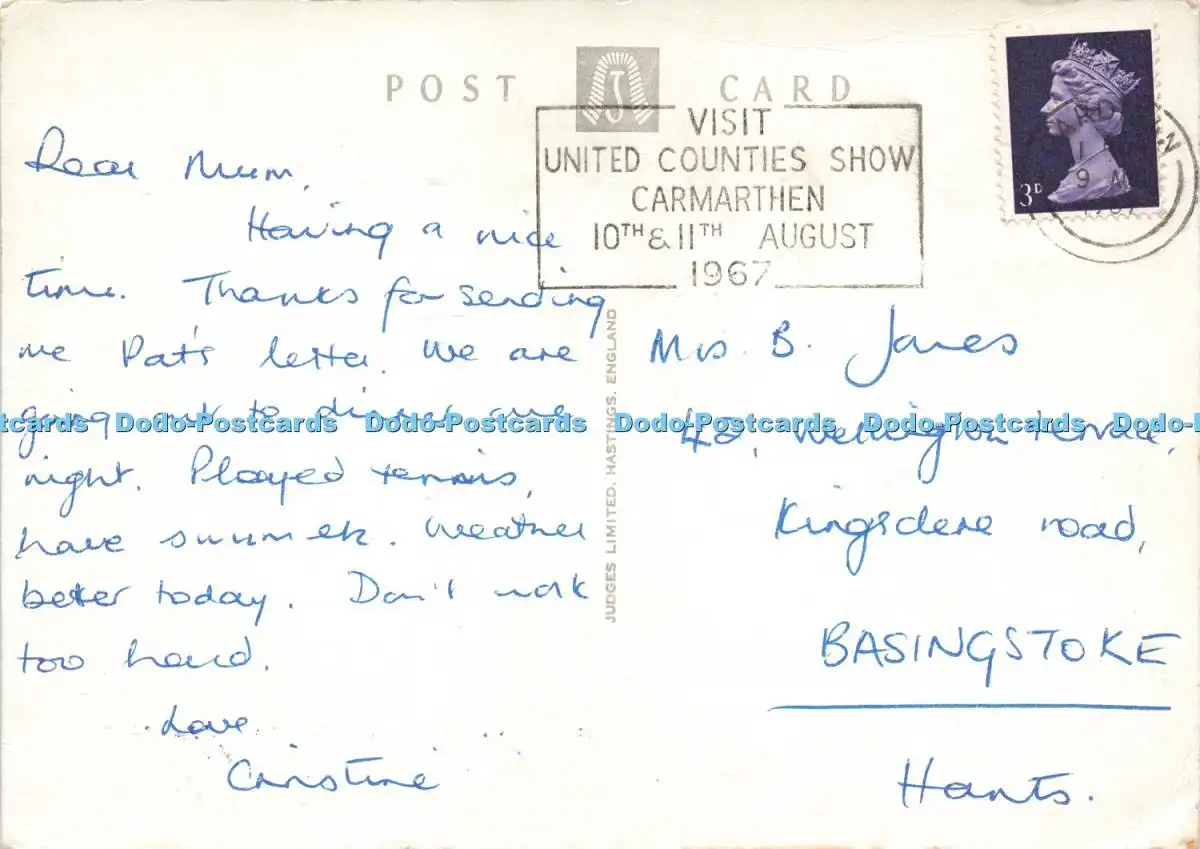 POST CARD
VISIT
UNITED COUNTIES SHOW
CARMARTHEN
10TH & 11TH AUGUST
1967
3D
Dear Mum,
Having a nice
time. Thanks for sending
me Pat's letter. We are
going out to dinner one
night. Played tennis,
have swum etc. Weather
better today. Don't work
too hard.
Love
Christine
JUDGES LIMITED, HASTINGS, ENGLAND
Mrs. B. Jones
42, Wellington terrace,
Kingsclere road,
BASINGSTOKE
Hants.
Dodo-Postcards Dodo-Postcards Dodo-Postcards Dodo-Postcards